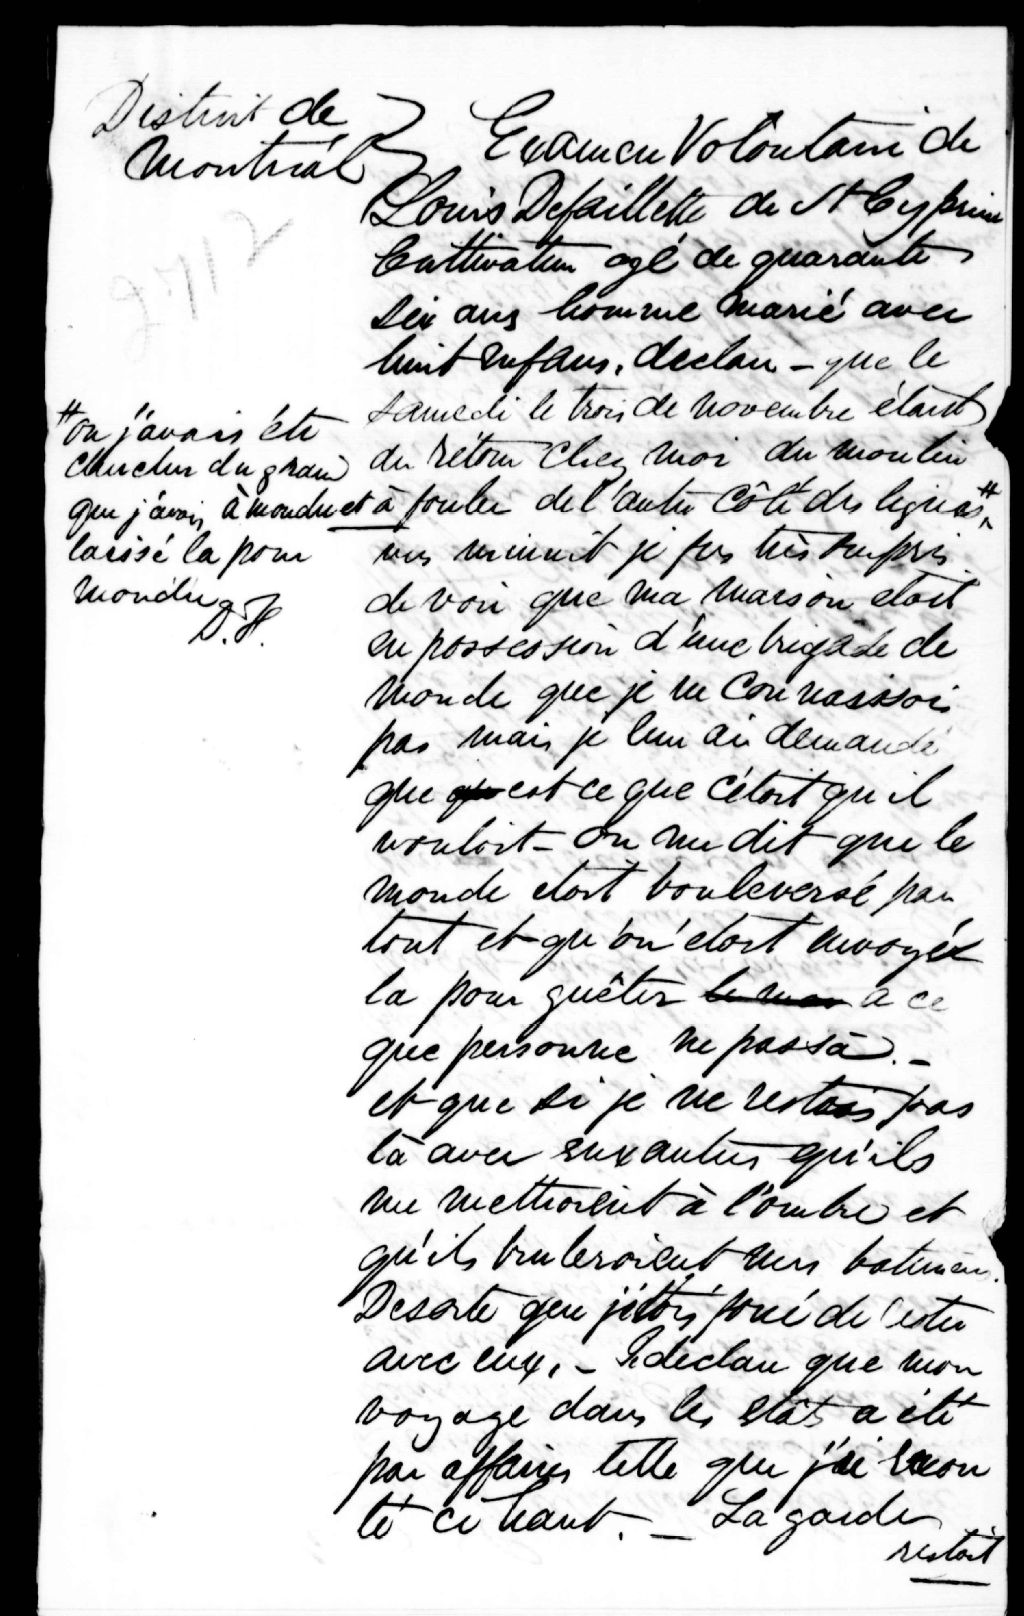 District de
Montréal
2712
Examen Volontaire de
Louis Defaillette de St Cyprien
Cultivateur agé de quarante
six ans homme marié avec
huit enfans, declare - que le
samedi le trois de novembre étant
de rétour chez moi du moulin
à fouler de l'autre côté des lignes #
vers minuit je fus très surpris
de voir que ma maison etoit
en possession d'une brigade de
monde que je ne connaissois
pas mais je leur ai demandé
que que est ce que c'étoit qu'il
vouloit - on me dit que le
monde etoit bouleversé par
tout et qu'on etoit envoyéx
la pour guêter a ce
que personne ne passa. -
et que si je ne restois pas
là avec eux autres qu'ils
me mettroient à l'ombre et
qu'ils bruleroient mes batimens.
Desorte que j'étois forcé de rester
avec eux, - Je declare que mon
voyage dans les etats a été
par affaires telle que j'ai racon
té ci haut. - La garde
restoit
# ou j'avais été
chercher du grain
que j'avais à moudre et
laissé la pour
moudre
D. H.